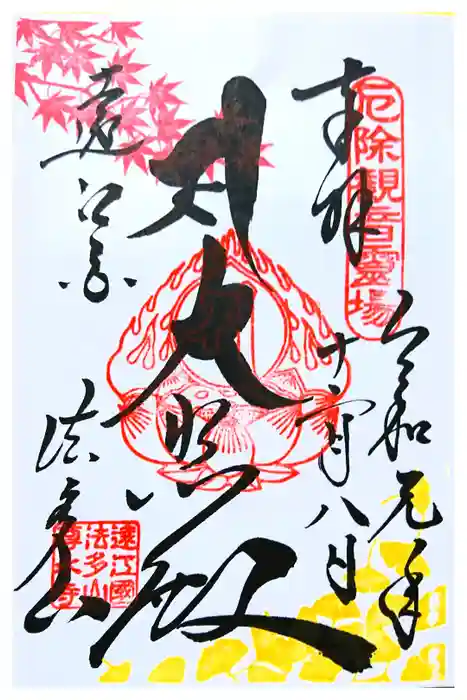 奉拝
厄除觀音靈場
令和元年
月八日
照殿
遠江
法多山
遠江國
法多山
尊永寺